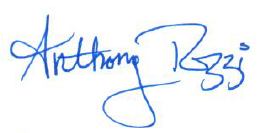 Anthony Rizzi